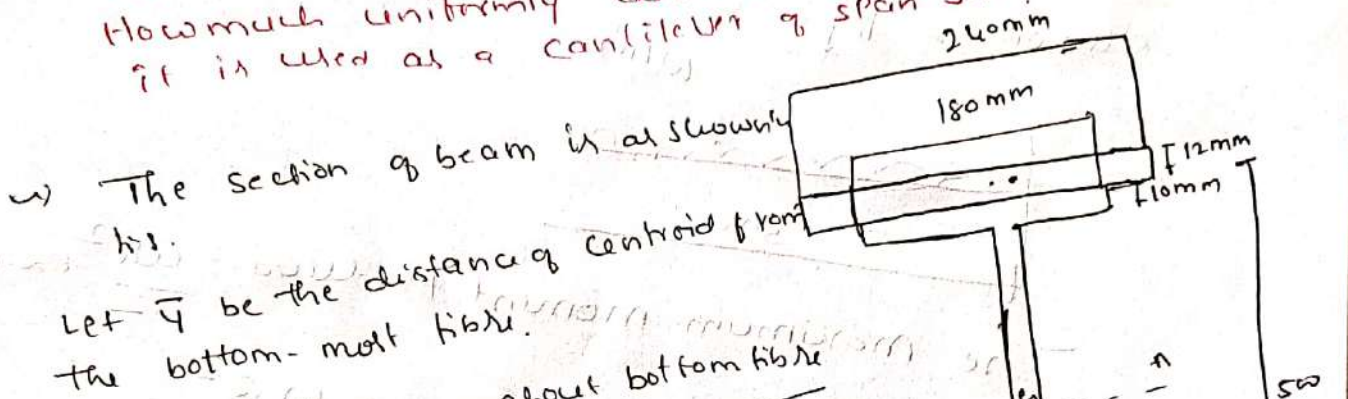 How much uniformly
it is used as a cantilever of span
240mm
180mm
The section of beam is as shown in
12mm
10mm
fig.
Let ȳ be the distance of centroid from
the bottom-most fibre.
about bottom fibre
500